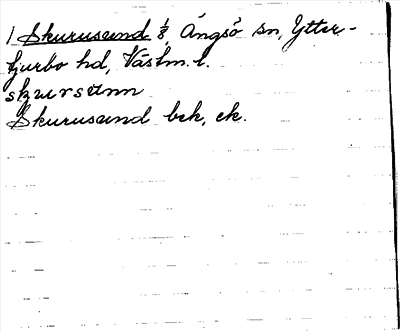 1 Skurusund 1/8, Ängsö sn, Ytter-
tjurbo hd, Västm. l.
Skurusund bek, ek.